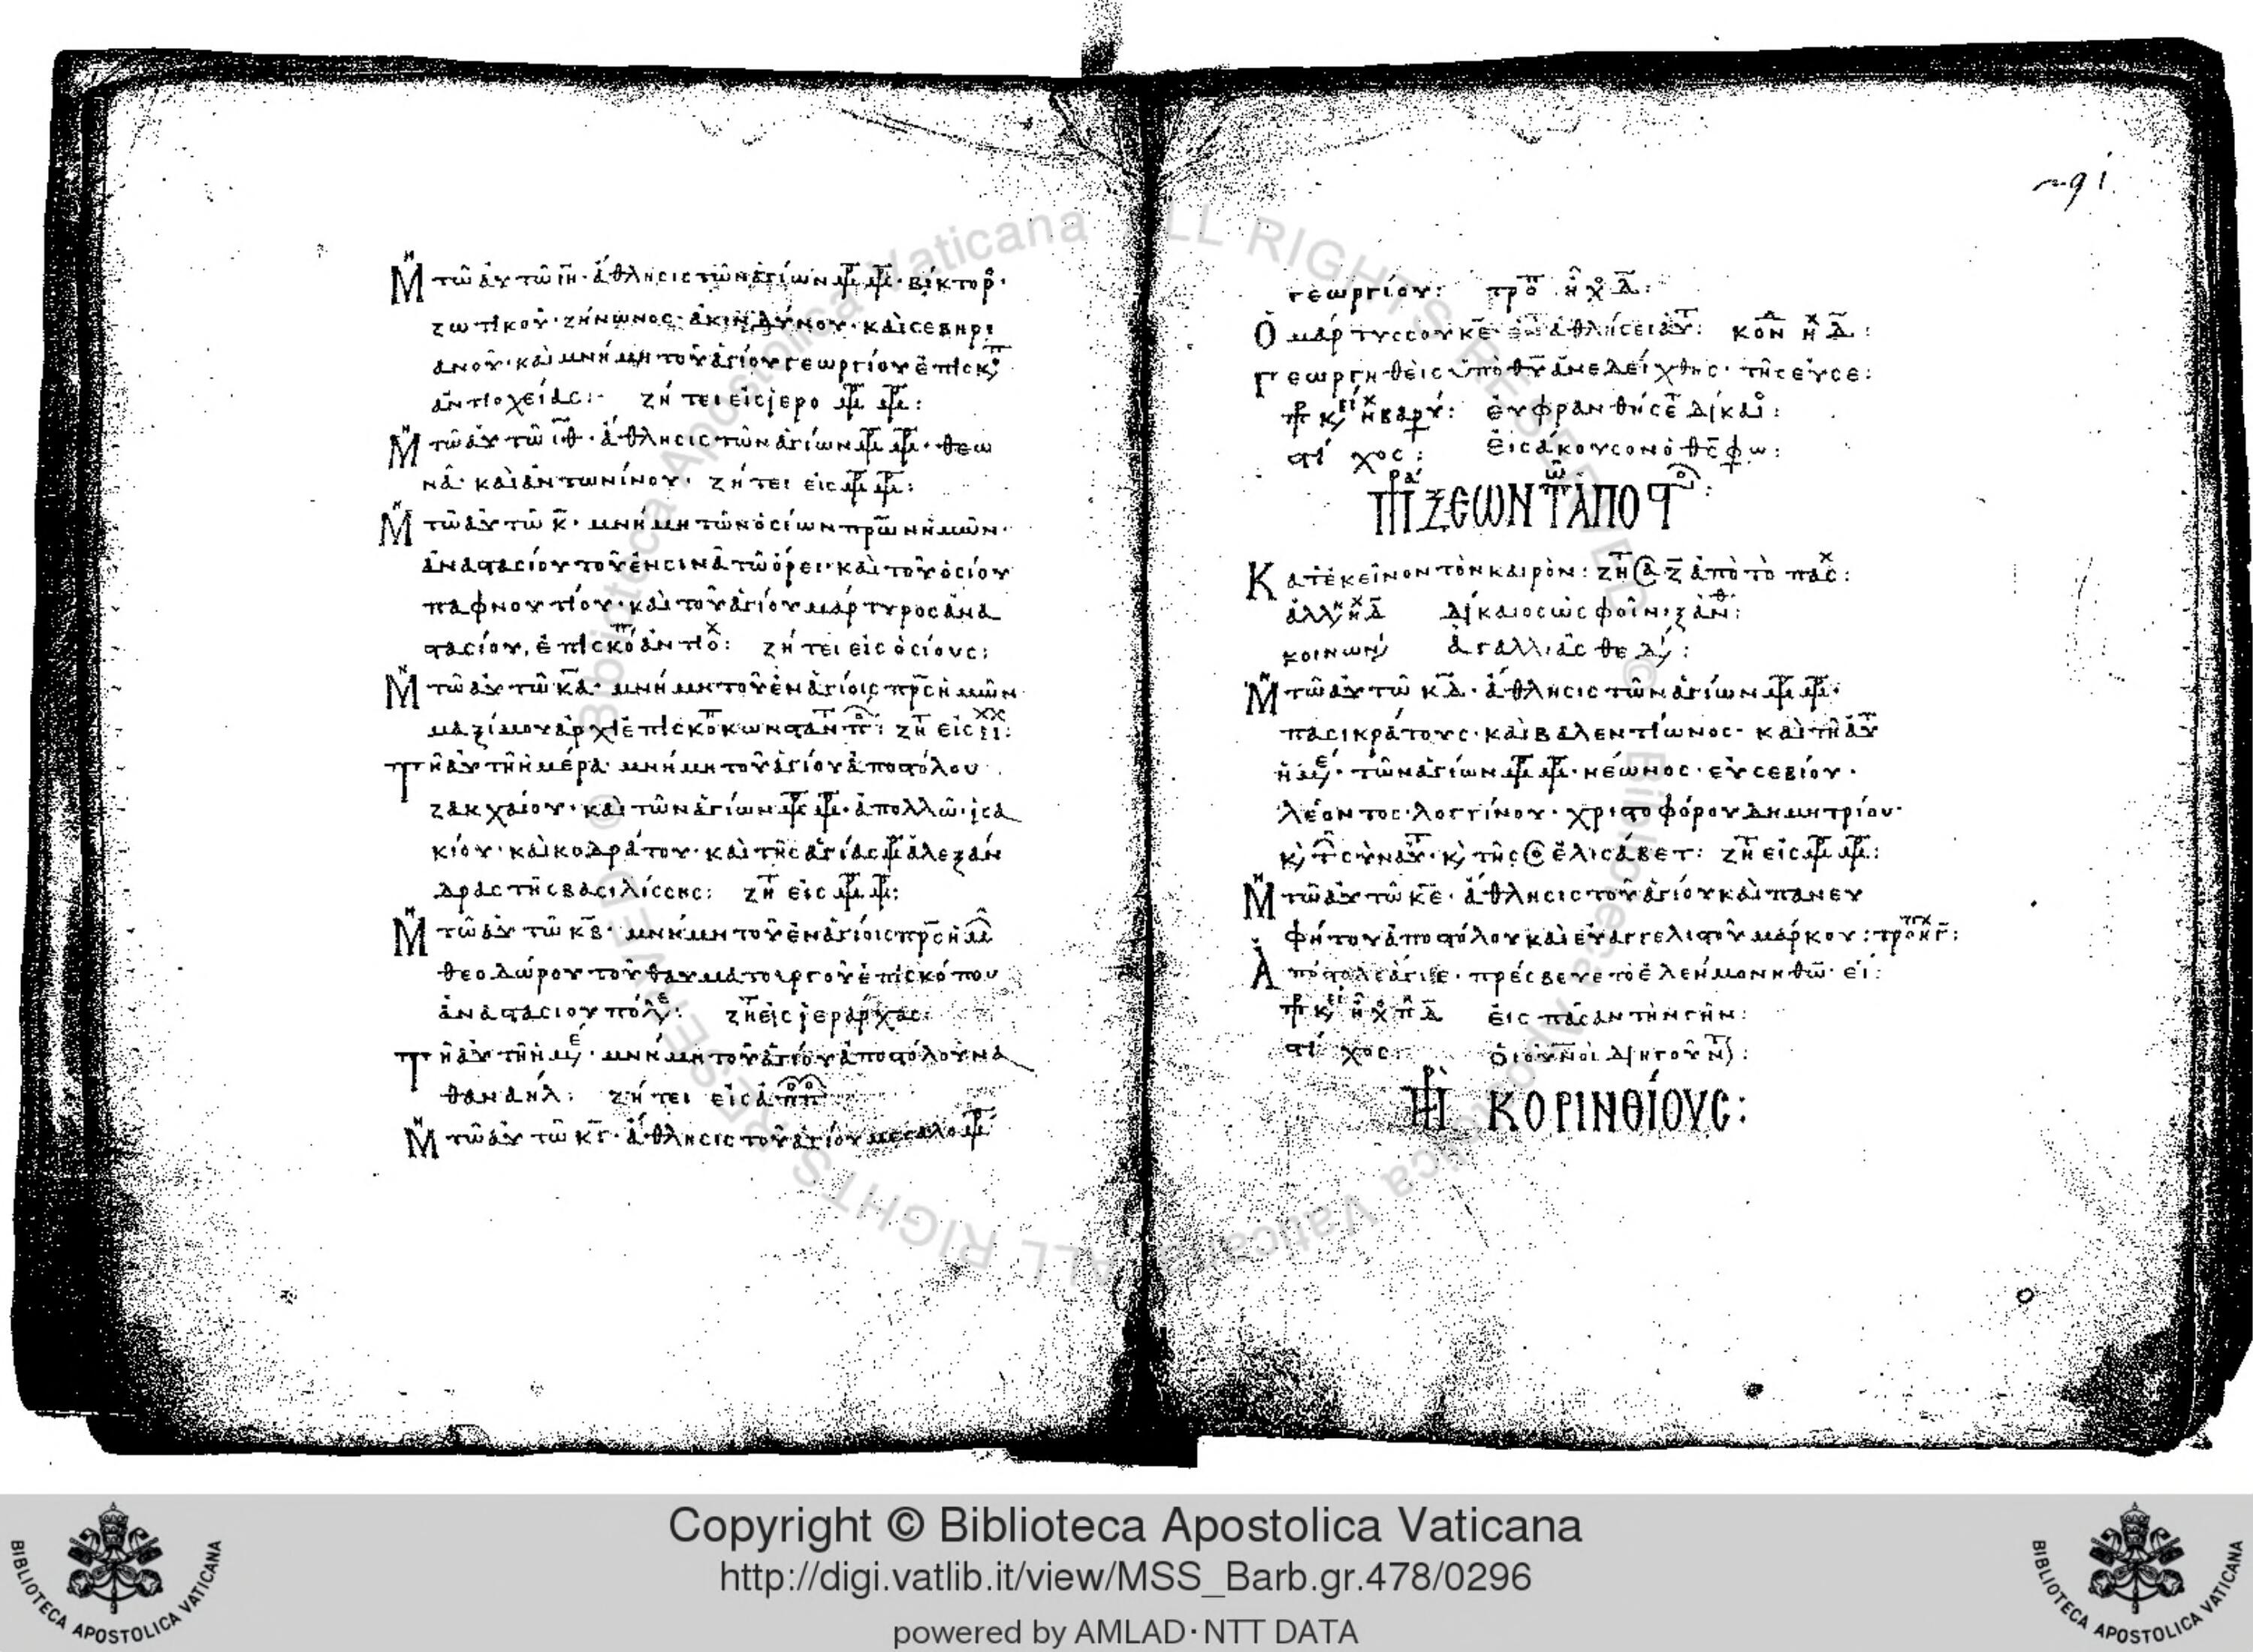 Μη τῶ αὐτῶ ιη· ἄθλησις τῶν ἁγίων μρ μρ· βίκτορο·
ζωτικοῦ· ζήνωνος· ἀκινδύνου· καὶ σεβηρι
ανοῦ· καὶ μνήμη τοῦ ἁγίου γεωργίου ἐπισκπ
ἀντιοχείας:· ζήτει εἰς ἱερο μρ μρ:
Μη τῶ αὐτῶ ιθ· ἄθλησις τῶν ἁγίων μρ μρ· θεω
νᾶ· καὶ ἀντωνίνου· ζήτει εἰς μρ μρ:
Μη τῶ αὐτῶ κ· μνήμη τῶν ὁσίων πρων ἡμῶν·
ἀναστασίου τοῦ ἐν σινᾶ τῶ ὄρει· καὶ τοῦ ὁσίου
παφνουτίου· καὶ τοῦ ἁγίου μάρτυρος ἀνα
στασίου, ἐπισκοπ ἀντιοχ: ζήτει εἰς ὁσίους:
Μη τῶ αὐτῶ κα· μνήμη τοῦ ἐν ἁγίοις πρς ἡμῶν
μαξίμου ἀρχιεπισκοπ κωνσταντπ: ζητ εἰς
Τῆ αὐτῆ ἡμέρα· μνήμη τοῦ ἁγίου ἀποστόλου
ζακχαίου· καὶ τῶν ἁγίων μρ μρ· ἀπολλῶ· ἰσα
κίου· καὶ κοδράτου· καὶ τῆς ἁγίας μρ ἀλεξάν
δρας τῆς βασιλίσσης: ζητ εἰς μρ μρ:
Μη τῶ αὐτῶ κβ· μνήμη τοῦ ἐν ἁγίοις πρς ἡμ
θεοδώρου τοῦ θαυματουργοῦ ἐπισκόπου
ἀναστασιουπόλε: ζητ εἰς ἱεράρχας:
Τῆ αὐτῆ ημε· μνήμη τοῦ ἁγίου ἀποστόλου να
θαναήλ: ζήτει εἰς ἀπο πο
Μη τῶ αὐτῶ κγ· ἄθλησις τοῦ ἁγίου μεγαλομρ
91
γεωργίου: τρο ηχ δ:
Ὁ μάρτυς σου κε ἐν ἀθλήσει αὐτ: κον ηχ δ:
Γεωργηθεὶς ὑπὸ θυ ἀνεδείχθης· τῆς εὐσε:
πρκει ηχ βαρύ: εὐφρανθήσετ δίκαιο:
στίχος: εἰσάκουσον ὁ θς φω:
πραξεων των αποστο:
Κατ ἐκεῖνον τὸν καιρὸν: ζητ ἀπὸ τὸ πασχ:
ἀλλη ηχ δ δίκαιος ὡς φοῖνιξ ἀνθ:
κοινων ἀγαλλιᾶσθε δί:
Μη τῶ αὐτῶ κδ· ἄθλησις τῶν ἁγίων μρ μρ·
πασικράτους· καὶ βαλεντίωνος· καὶ τῆ αὐτ
ημε· τῶν ἁγίων μρ μρ· νέωνος· εὐσεβίου·
λέοντος· λογγίνου· χριστοφόρου δημητρίου·
κ τ σὺν αὐτ· κ τῆς ἐλισάβετ: ζητ εἰς μρ μρ:
Μη τῶ αὐτῶ κε· ἄθλησις τοῦ ἁγίου καὶ πανευ
φήτου ἀποστόλου καὶ εὐαγγελιστοῦ μάρκου: τροπ ηχ γ:
Ἀπόστολε ἅγιε· πρέσβευε τῶ ἐλεήμονη θω· εἰ:
πρκει ηχ πδ εἰς πᾶσαν τὴν γῆν:
στίχος: οἱ οὐνοὶ διηγοῦντ:
πρ κορινθίους:
Copyright © Biblioteca Apostolica Vaticana
http://digi.vatlib.it/view/MSS_Barb.gr.478/0296
powered by AMLAD·NTT DATA
BIBLIOTECA APOSTOLICA VATICANA
BIBLIOTECA APOSTOLICA VATICANA